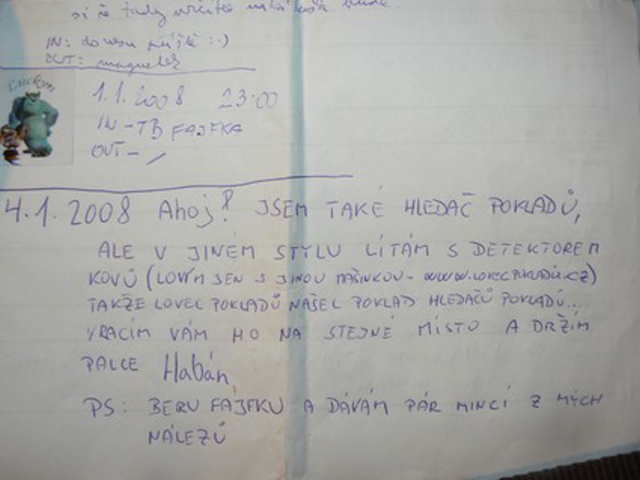 si že tady určitě
IN: dowsu příště :-)
OUT: magnetek
1.1.2008 23:00
IN - TB FAJFKA
OUT - /
4.1.2008 Ahoj! JSEM TAKÉ HLEDAČ POKLADŮ,
ALE V JINÉM STYLU LÍTÁM S DETEKTOREM
KOVŮ (LOVÍM JEN S JINOU MAŠINKOU - WWW.LOVECPOKLADU.CZ)
TAKŽE LOVEC POKLADŮ NAŠEL POKLAD HLEDAČŮ POKLADŮ...
VRACÍM VÁM HO NA STEJNÉ MÍSTO A DRŽÍM
PALCE Habán,
PS: BERU FAJFKU A DÁVÁM PÁR MINCÍ Z MÝCH
NÁLEZŮ